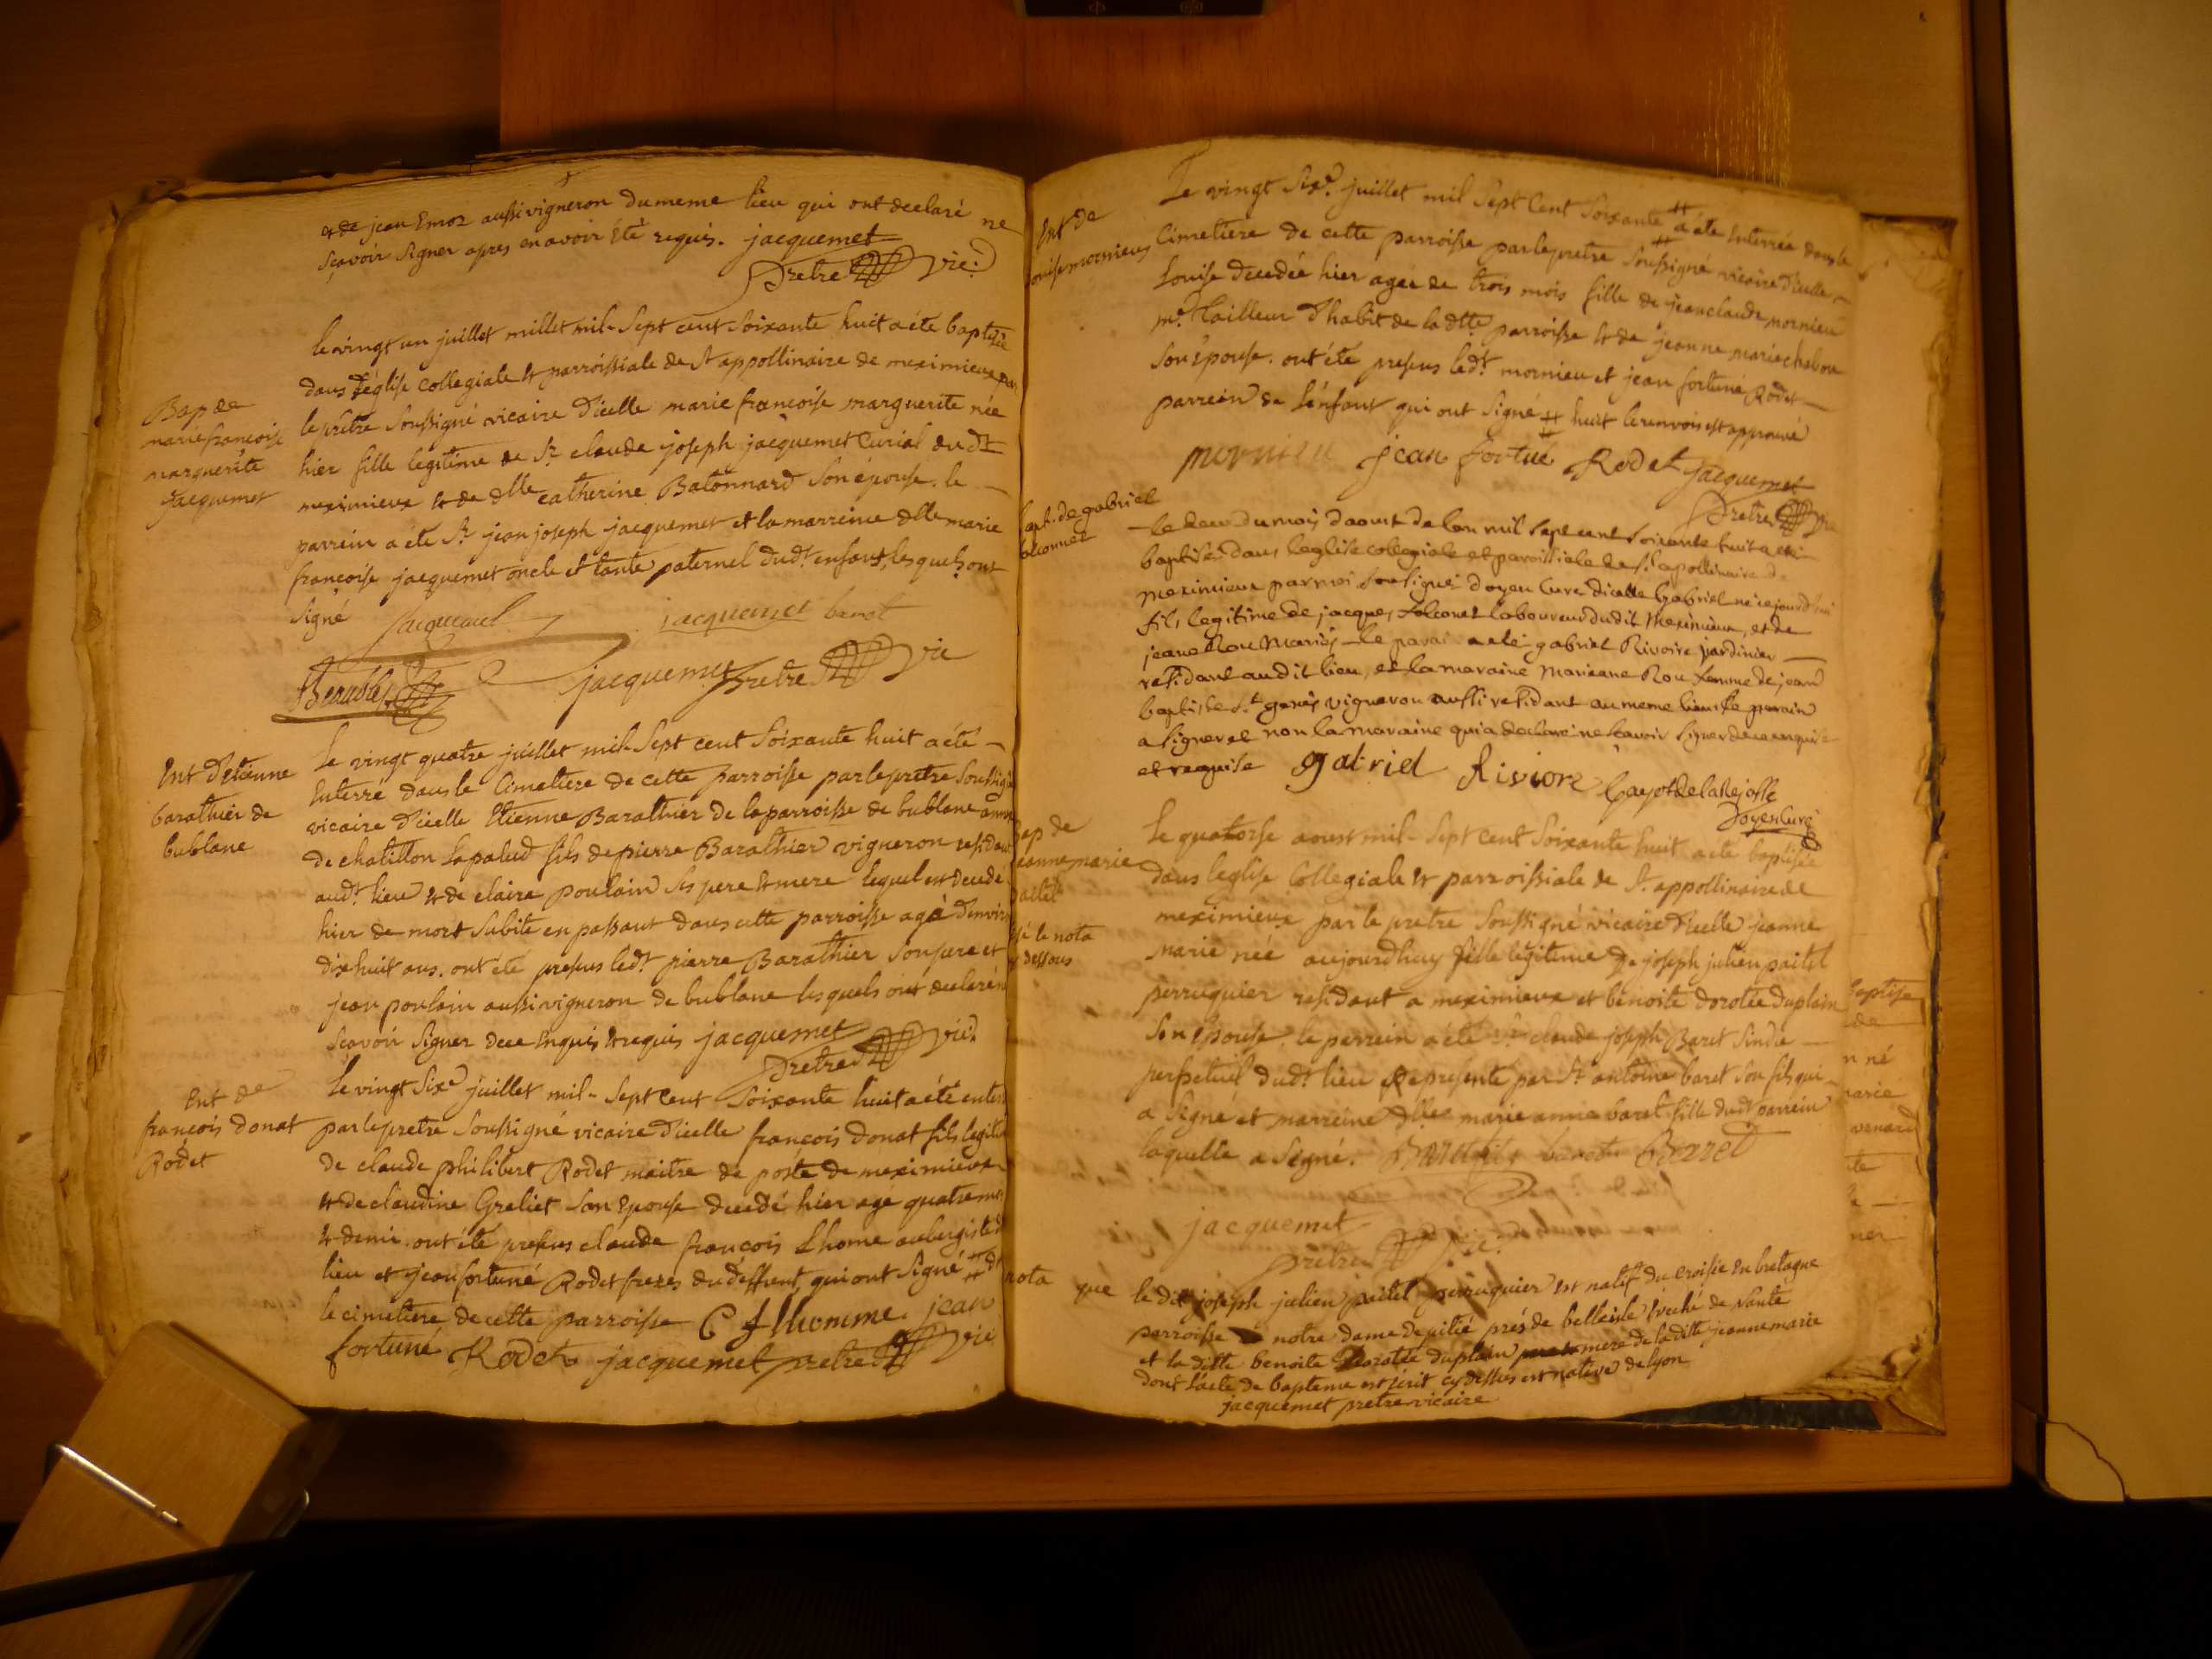 & de jean Emoz aussi vigneron du meme lieu qui ont declaré ne
sçavoir signer apres en avoir été requis. jacquemet
pretre vic.
Bap de
marie françoise
marguerite
jacquemet
le vingt un juillet millet mil sept cent soixante huit a été baptisée
dans l'église collegiale & parroissiale de st appollinaire de meximieux par
le prêtre soussigné vicaire d'icelle marie françoise marguerite née
hier fille legitime de sr claude joseph jacquemet curial dudt
meximieux & de dlle catherine Batonnard son épouse. le
parrein a été sr jean joseph jacquemet et la marreine dlle marie
françoise jacquemet oncle et tante paternel dudt enfant, lesquels ont
signé jacquemet jacquemet
jacquemet pretre vic
Ent d'etienne
barathier de
bublane
Le vingt quatre juillet mil sept cent soixante huit a été
enterré dans le cimetiere de cette parroisse par le pretre soussigné
vicaire d'icelle Etienne Barathier de la parroisse de bublane annexe
de chatillon lapalud fils de pierre Barathier vigneron residant
audt lieu & de claire poulain ses pere & mere lequel est decedé
hier de mort subite en passant dans cette parroisse agé d'environ
dix huit ans. ont été presens ledt pierre Barathier son pere et
jean poulain aussi vigneron de bublane lesquels ont declaré n
sçavoir signer de ce enquis & requis jacquemet
pretre vic.
Ent de
françois donat
Rodet
Le vingt sixe juillet mil sept cent soixante huit a été enter
par le pretre soussigné vicaire d'icelle françois donat fils legitime
de claude philibert Rodet maitre de poste de meximieux
& de claudine Greliet son epouse decedé hier agé quatre mois
& demi. ont été presens claude françois Lhome aubergiste dt
lieu et jean fortuné Rodet freres du deffunt, qui ont signé # dt
le cimetiere de cette parroisse C f lhomme jean
fortuné Rodet jacquemet pretre vic
Ent de
louise mornieux
Le vingt sixe juillet mil sept cent soixante # a été enterrée dans le
cimetiere de cette parroisse par le pretre soussigné vicaire d'icelle
Louise decedée hier agée de trois mois fille de jean claude mornieu
me tailleur d'habit de la dtte parroisse & de jeanne marie chabou
son epouse. ont été presens ledt mornieu et jean fortuné Rodet
parrein de l'enfant qui ont signé # huit le renvois est approuvé
mornieu jean fortué Rodet jacquemet
pretre vic
bapt. de gabriel
Le deux du mois daoust de lan mil sept cent soixante huit a été
baptisé dans leglise collegiale et paroissiale de st apollinaire de
meximieux par moi sousigné doyen curé dicelle Gabriel né cejourd'hui
fils legitime de jacques folconet laboureur dudit meximieux, et de
jeane Rou mariés le parain a été gabriel Rivoire jardinier
residant audit lieu, et la maraine mariane Rou femme de jean
baptiste st genis vigneron aussi residant au meme lieu le parain
a signer et non la maraine qui a declaré ne scavoir signer de ce enquise
et requise gabriel Riviore Cayot de la Rejasse
Doyen Curé
bap de
jeanne marie
paitel
le nota
dessous
Le quatorse aoust mil sept cent soixante huit a été baptisée
dans leglise collegiale & parroissiale de st appollinaire de
meximieux par le pretre soussigné vicaire d'icelle jeanne
marie née aujourdhuy fille legitime de joseph julien paitel
perruquier residant a meximieux et benoite dorotée duplain
son epouse. le perrein a été sr claude joseph Baret sindic
perpetuel dudt lieu representé par sr antoine baret son fils qui
a signé et marreine dlle marie anne baret fille dudt parrein
laquelle a signé. Baret fils Barret
jacquemet
pretre vic.
nota que le dit joseph julien paitel perruquier est natif du croisic en bretagne
parroisse notre dame de pitié prés de belleisle Evêché de nante
et la ditte benoite Dorotée duplain mere de la ditte jeanne marie
dont l'acte de bapteme est écrit cy dessus est native de lyon
jacquemet pretre vicaire
baptise
de
n né
marié